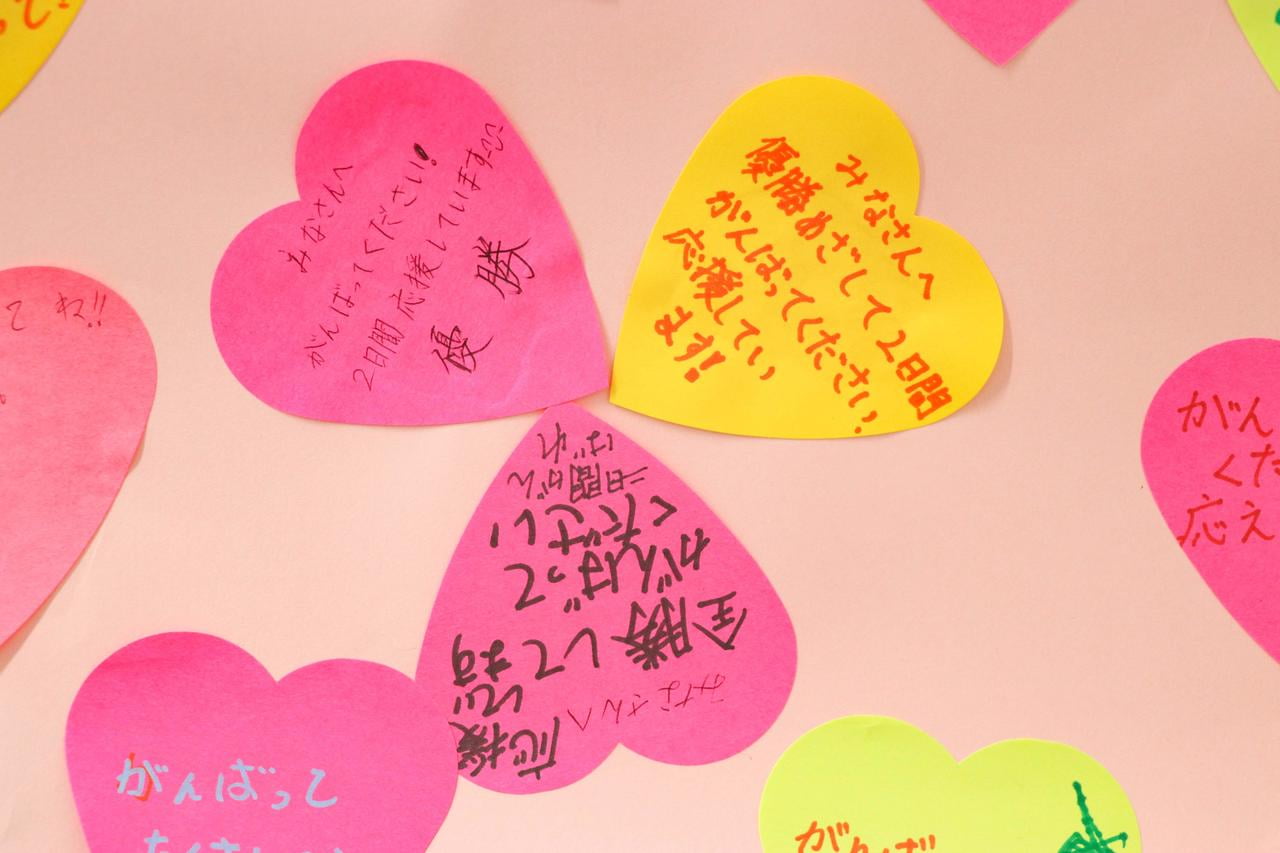 みなさんへ
がんばってください!
2日間応援しています
優 勝
みなさんへ
優勝めざして2日間
がんばってください。
応援してい
ます!
みなさんへ
全勝して
がんばって
ください
二日間がん
ばれ
応援
して
ます
てね!!
がん
くだ
応え
がんばって
がんば